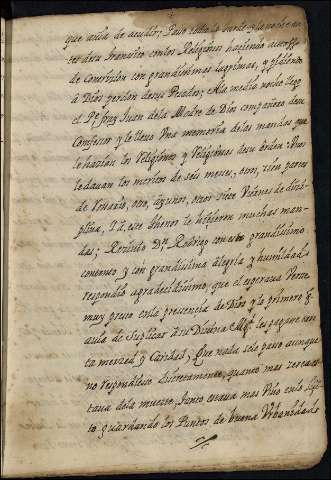 que avia de acudir; Paso toda la tarde y la noche an-
tera Dn Rodrigo con los Religiosos haciendo actos
de Contrición con grandissimas lagrimas, y pidiendo
a Dios perdon de sus Pecados; A la media noche llego
el Pe. fray Juan dela Madre de Dios compañero desu
Confesor y le llevo Una memoria delas mandas que
le hacian los Religiosos y Religiosas desu orden: Unos
le davan los meritos de seis meses, otros, cien partes
de Rosario, otro, ayunos, otros siete Viernes de disci-
plina Y a este thenor le hicieron muchas man-
das; Recibido Dn. Rodrigo con este grandissimo
consuelo y con grandissima alegria y humildad
respondió agradecidissimo, que el esperava Verse
muy presto en la presencia de Dios y lo primero q.
avia de Suplicar a su Divina Magd. les pagase tan-
ta merced y Caridad; Que nada solo paso aunque
no respondiese discretamente, quanto mas cercano
estava dela muerte, tanto estava mas Vivo en lo
to guardando los Puntos de buena Urbanidad